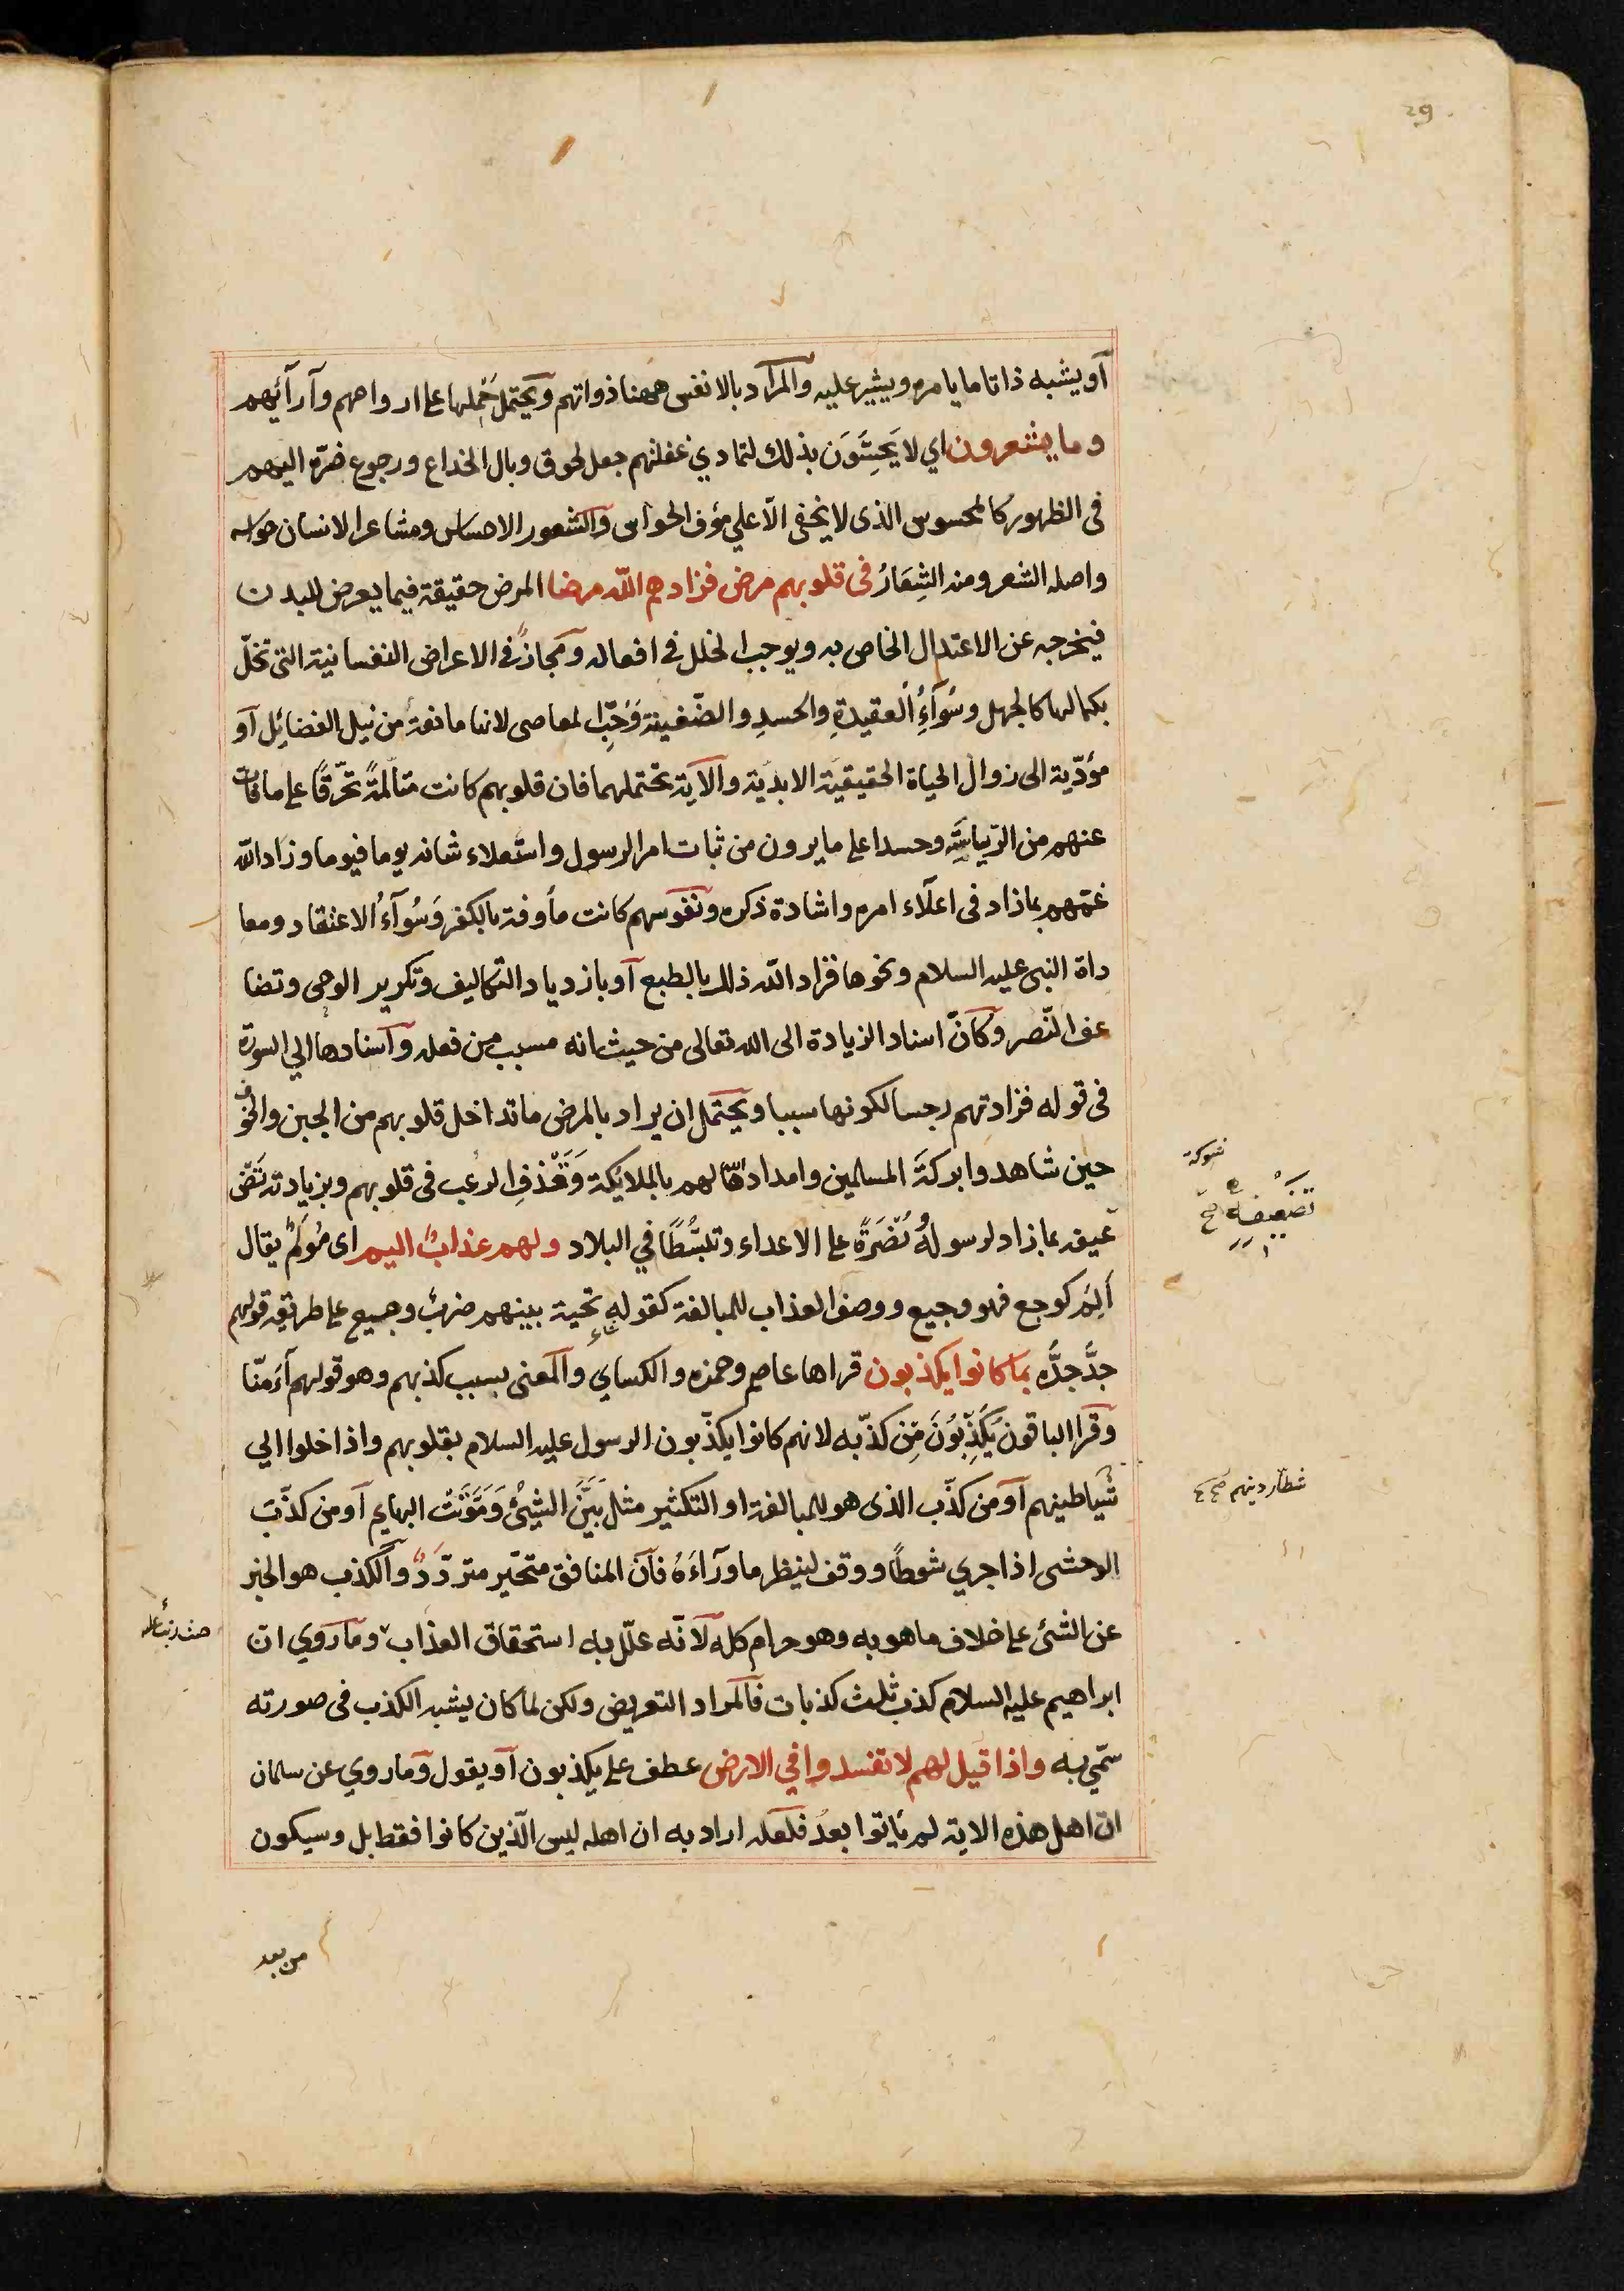 29
أو يشبه ذاتا ما يامره ويشير عليه والمراد بالانفس ههنا ذواتهم ويحتمل حملها على ارواحهم وآرائهم
وما يشعرون اي لا يَحِسُّونَ بذلك لتمادي غفلتهم جعل لحوق وبال الخداع ورجوع ضرّه اليهم
فى الظهور كالمحسوس الذى لا يخفى الّا علي مؤف الحواس والشعور الاحساس ومشاعر الانسان حواسه
واصله الشعر ومنه الشِعَارُ فى قلوبهم مرض فزادهم اللّه مرضا المرض حقيقة فيما يعرض للبدن
فيخرجه عن الاعتدال الخاص به ويوجب الخلل فى افعاله ومجازٌ فى الاعراض النفسانية التى تخلّ
بكمالها كالجهل وسُوآءِ العقيدةِ والحسدِ والضّغينة وَحُبِّ المعاصى لانها مانعة من نيل الفضائل أو
مؤدّية الى زوال الحياة الحقيقيّة الابديّة والآية تحتملهما فان قلوبهم كانت متالمةً تحرّقًا على ما فات
عنهم من الرّياسَة وحسدا على ما يرون من ثبات امر الرسول واستعلاء شانه يوما فيوما وزاد اللّه
غمّهم بما زاد فى اعلآء امره واشادة ذكره ونفوسهم كانت مأوفة بالكفر وَسُوآءُ الاعتقاد ومعا
داة النبى عليه السلام ونحوها فزاد اللّه ذلك بالطبع أو بازدياد التكاليف وتكرير الوحى وتضا
عف النّصر وكانّ اسناد الزيادة الى اللّه تعالى من حيث انه مسبب من فعله وآسنادها الي السورة
فى قوله فزادتهم رجسا لكونها سببا ويحتمل ان يراد بالمرض ما تداخل قلوبهم من الجبن والخوف
حين شاهدوا بركةَ المسلمين وامداد اللّه لهم بالملايكة وَقَذْفِ الرعب فى قلوبهم وبزيادته تَضْ
شوكة
تَضْعِيفه
عيفه بما زاد لرسولِهُ نُصْرَةً على الاعداء وتبسُّطًا في البلاد ولهم عذابٌ اليم اى مُولَمٌ يقال
أَلِمَ كوجع فهو وجيع ووصف العذاب للمبالغة كقوله تحية بينهم ضربٌ وجيع على طريقة قولهم
جدَّ جدُّه بما كانوا يكذبون قراها عاصم وحمزه والكساي والمعنى بسبب كذبهم وهو قولهم آمَنّا
وقرا الباقون يُكَذِّبُونَ مِن كذّبه لانهم كانوا يكذّبون الرسول عليه السلام بقلوبهم واذا خلوا الي
شَياطينهم آو من كذّب الذى هو للمبالغة او التكثير مثل بَيَّنَ الشيْئُ وَمَوَّتَتْ البهايم أو من كذّبَ
شطار دينهم
الوحشى اذا جري شوطًا ووقف لينظر ما ورآءَهُ فأن المنافق متحّير متردّدٌ والكذب هو الخبر
عن الشئ على خلاف ما هو به وهو حرام كله لآنّه علّل به استحقاق العذاب وما روي ان
ابراهيم عليه السلام كذب ثلث كذبات فالمراد التعريض ولكن لما كان يشبه الكذب فى صورته
سمّي به واذا قيل لهم لا تفسدوا في الارض عطف على يكذبون آو يقول وما روي عن سلمان
ان اهل هذه الاية لم يأتوا بعدُ فلعله اراد به ان اهله ليس الّذين كانوا فقط بل وسيكون
من بعد